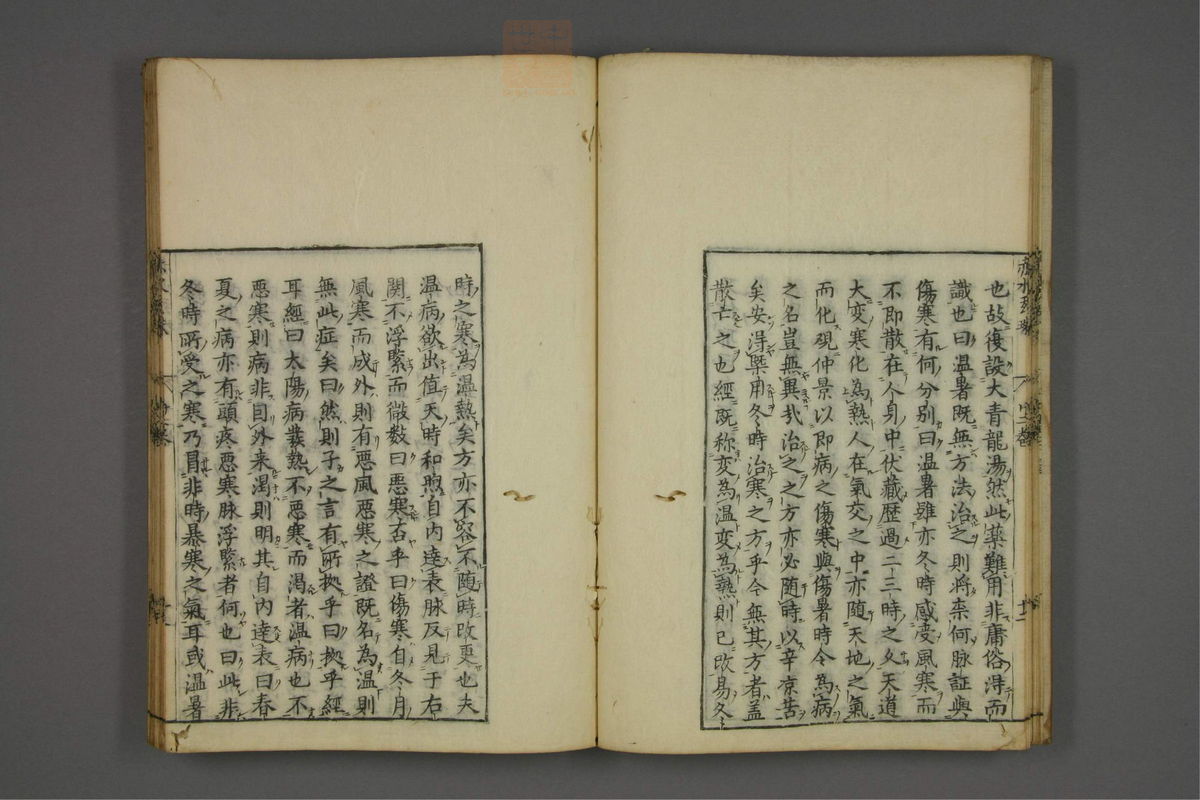 也故復設大青龍湯然此藥難用非庸俗淂而
識也曰温暑既無方法治之則将柰何脉証與
傷寒有何分别曰温暑雖亦冬時感受風寒而
不即散在人身中伏藏歴過二三時之久天道
大変寒化為熱人在氣交之中亦随天地之氣
而化覌仲景以即病之傷寒與傷暑時令為病
之名豈無異㢤治之之方亦必随時以辛凉苦
矣安淂槩用冬時治寒之方乎今無其方者盖
散亡之也經既称変為温変為熱則已改易冬
時之寒為温熱矣方亦不容不随時改更也夫
温病欲出值天時和煦自内達表脉反見于右
関不浮緊而微数曰惡寒否乎曰傷寒自冬月
風寒而成外則有惡風惡寒之證既名為温則
無此症矣曰然則子之言有所拠乎曰拠乎經
耳經曰太陽病發熱不惡寒而渇者温病也不
惡寒則病非因外来渇則明其自内達表曰春
夏之病亦有頭疼惡寒脉浮緊者何也曰此非
冬時所受之寒乃冒非時暴寒之氣耳或温暑